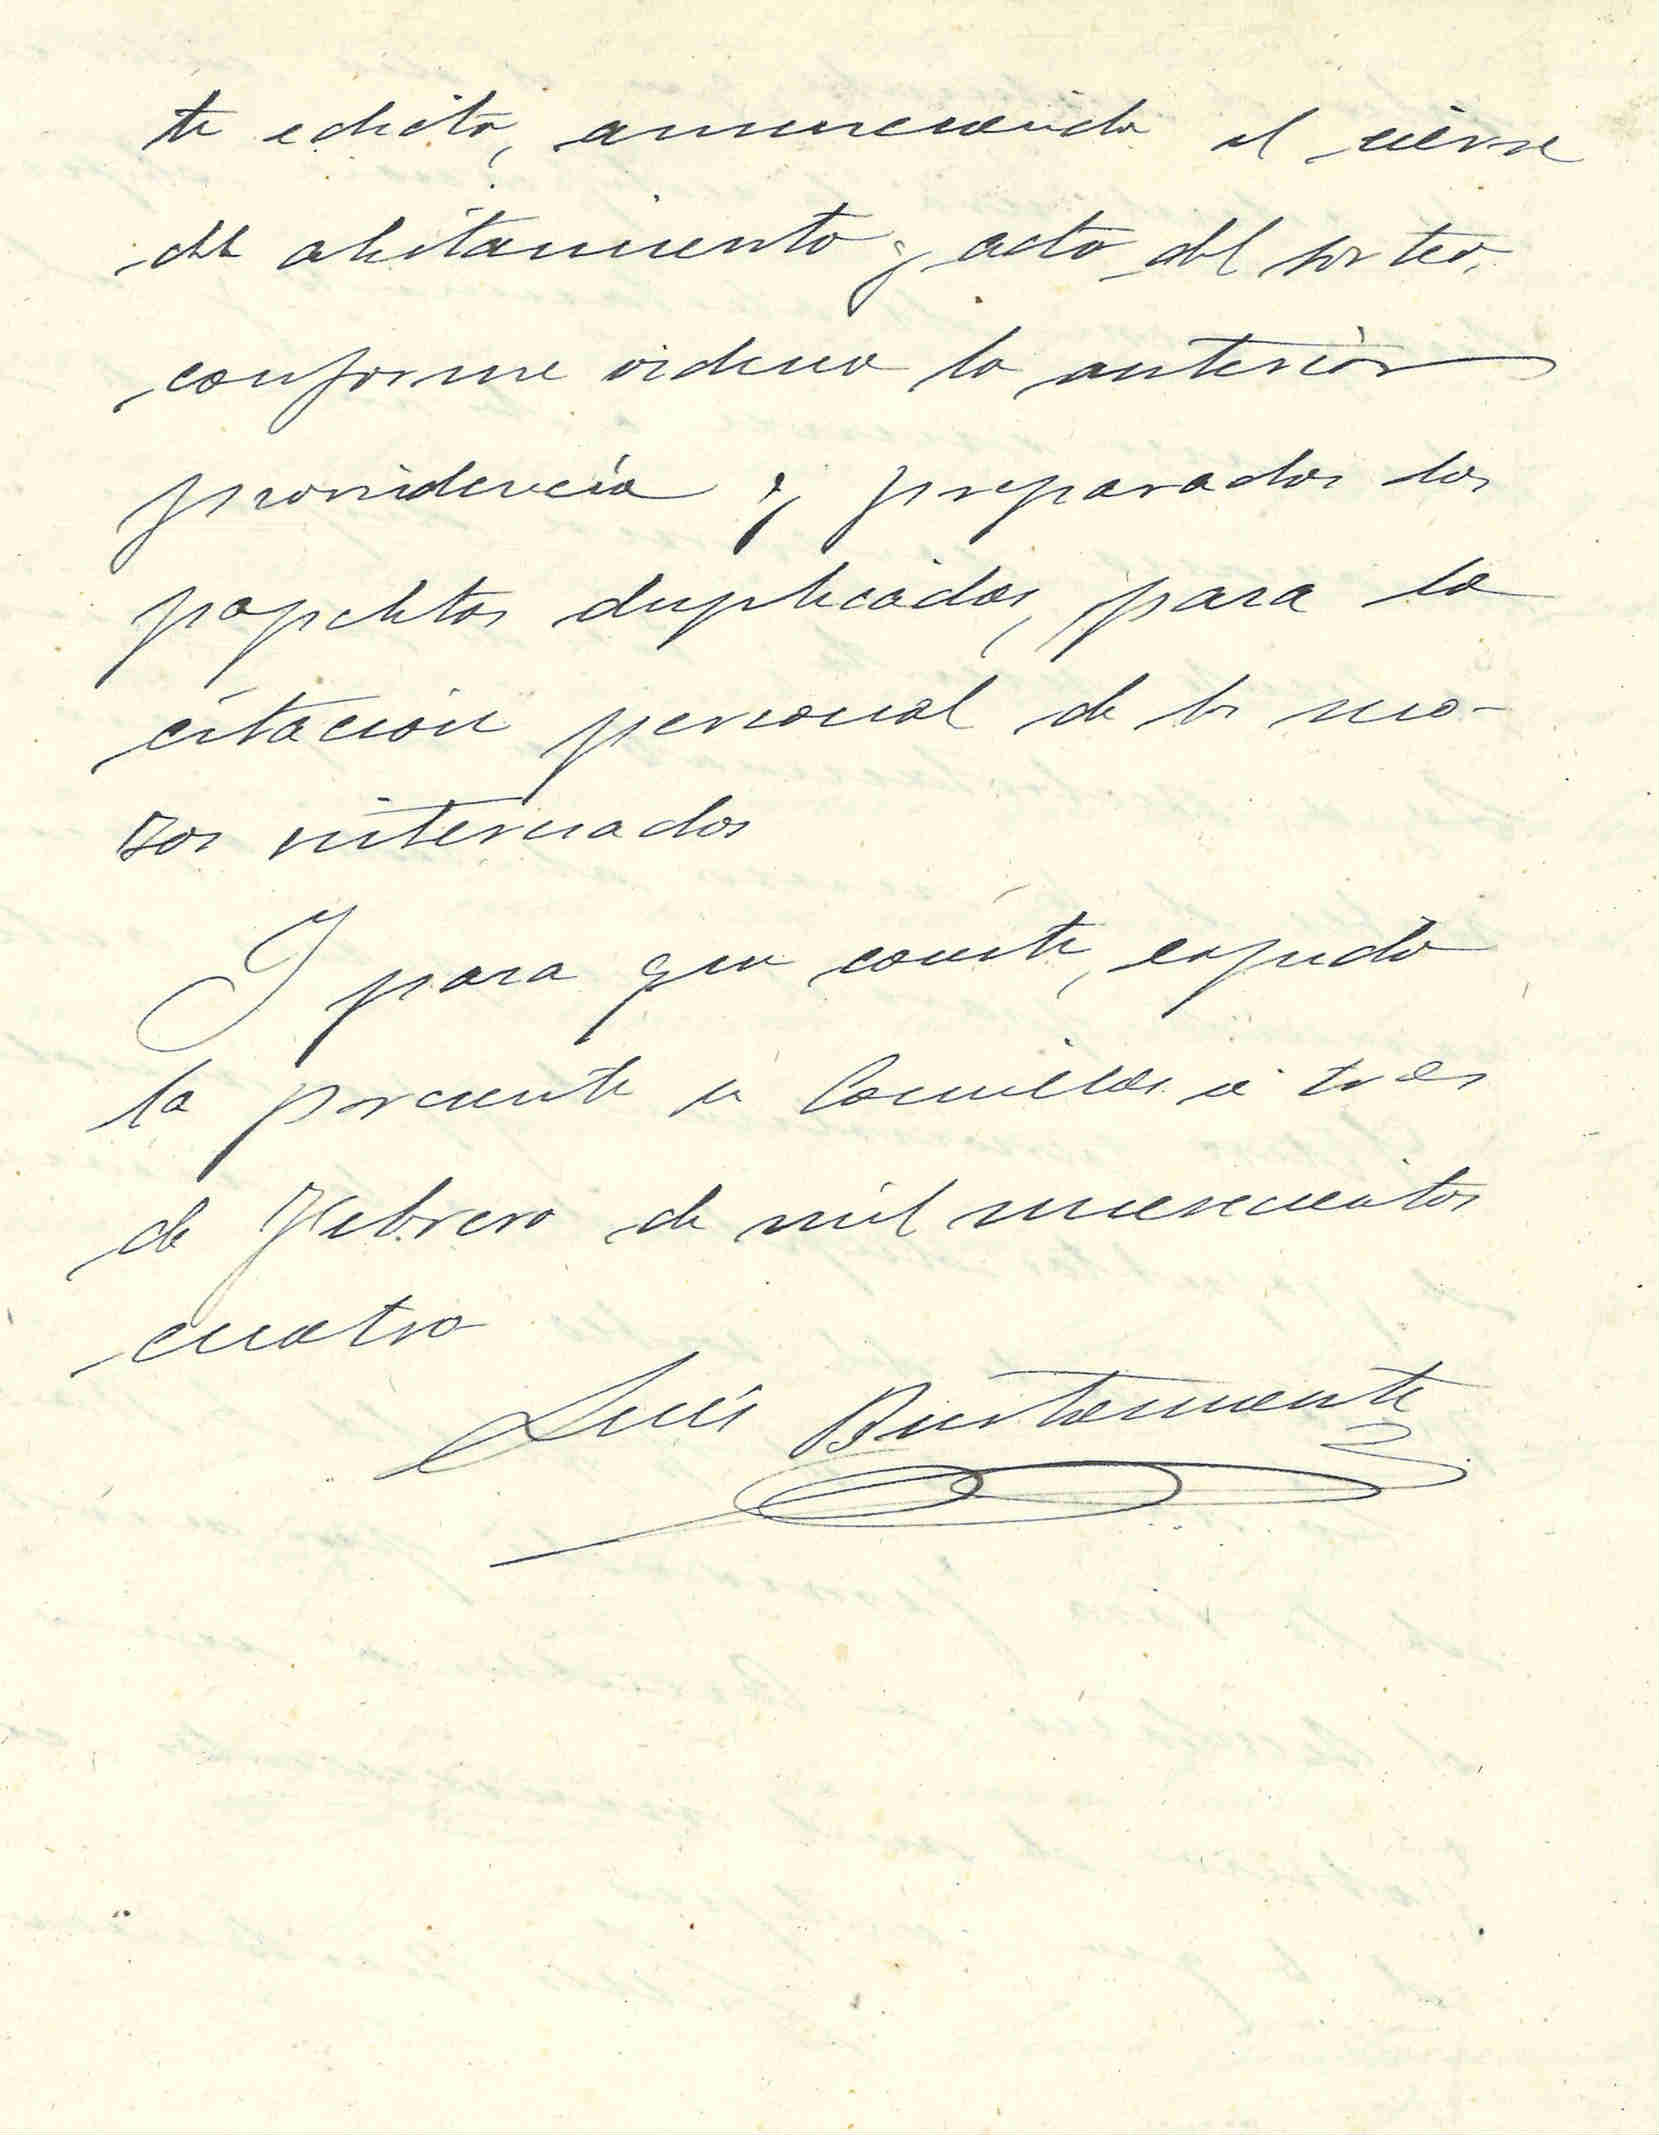 te edicto, anunciando el cierre
del alistamiento y acto del sorteo,
conforme ordena la anterior
providencia y preparados los
papeletas duplicadas, para la
citación personal de los mo-
zos interesados
Y para que conste, expido
la presente en Comillas á tres
de Febrero de mil nuevecientos
cuatro
Luis Bustamante